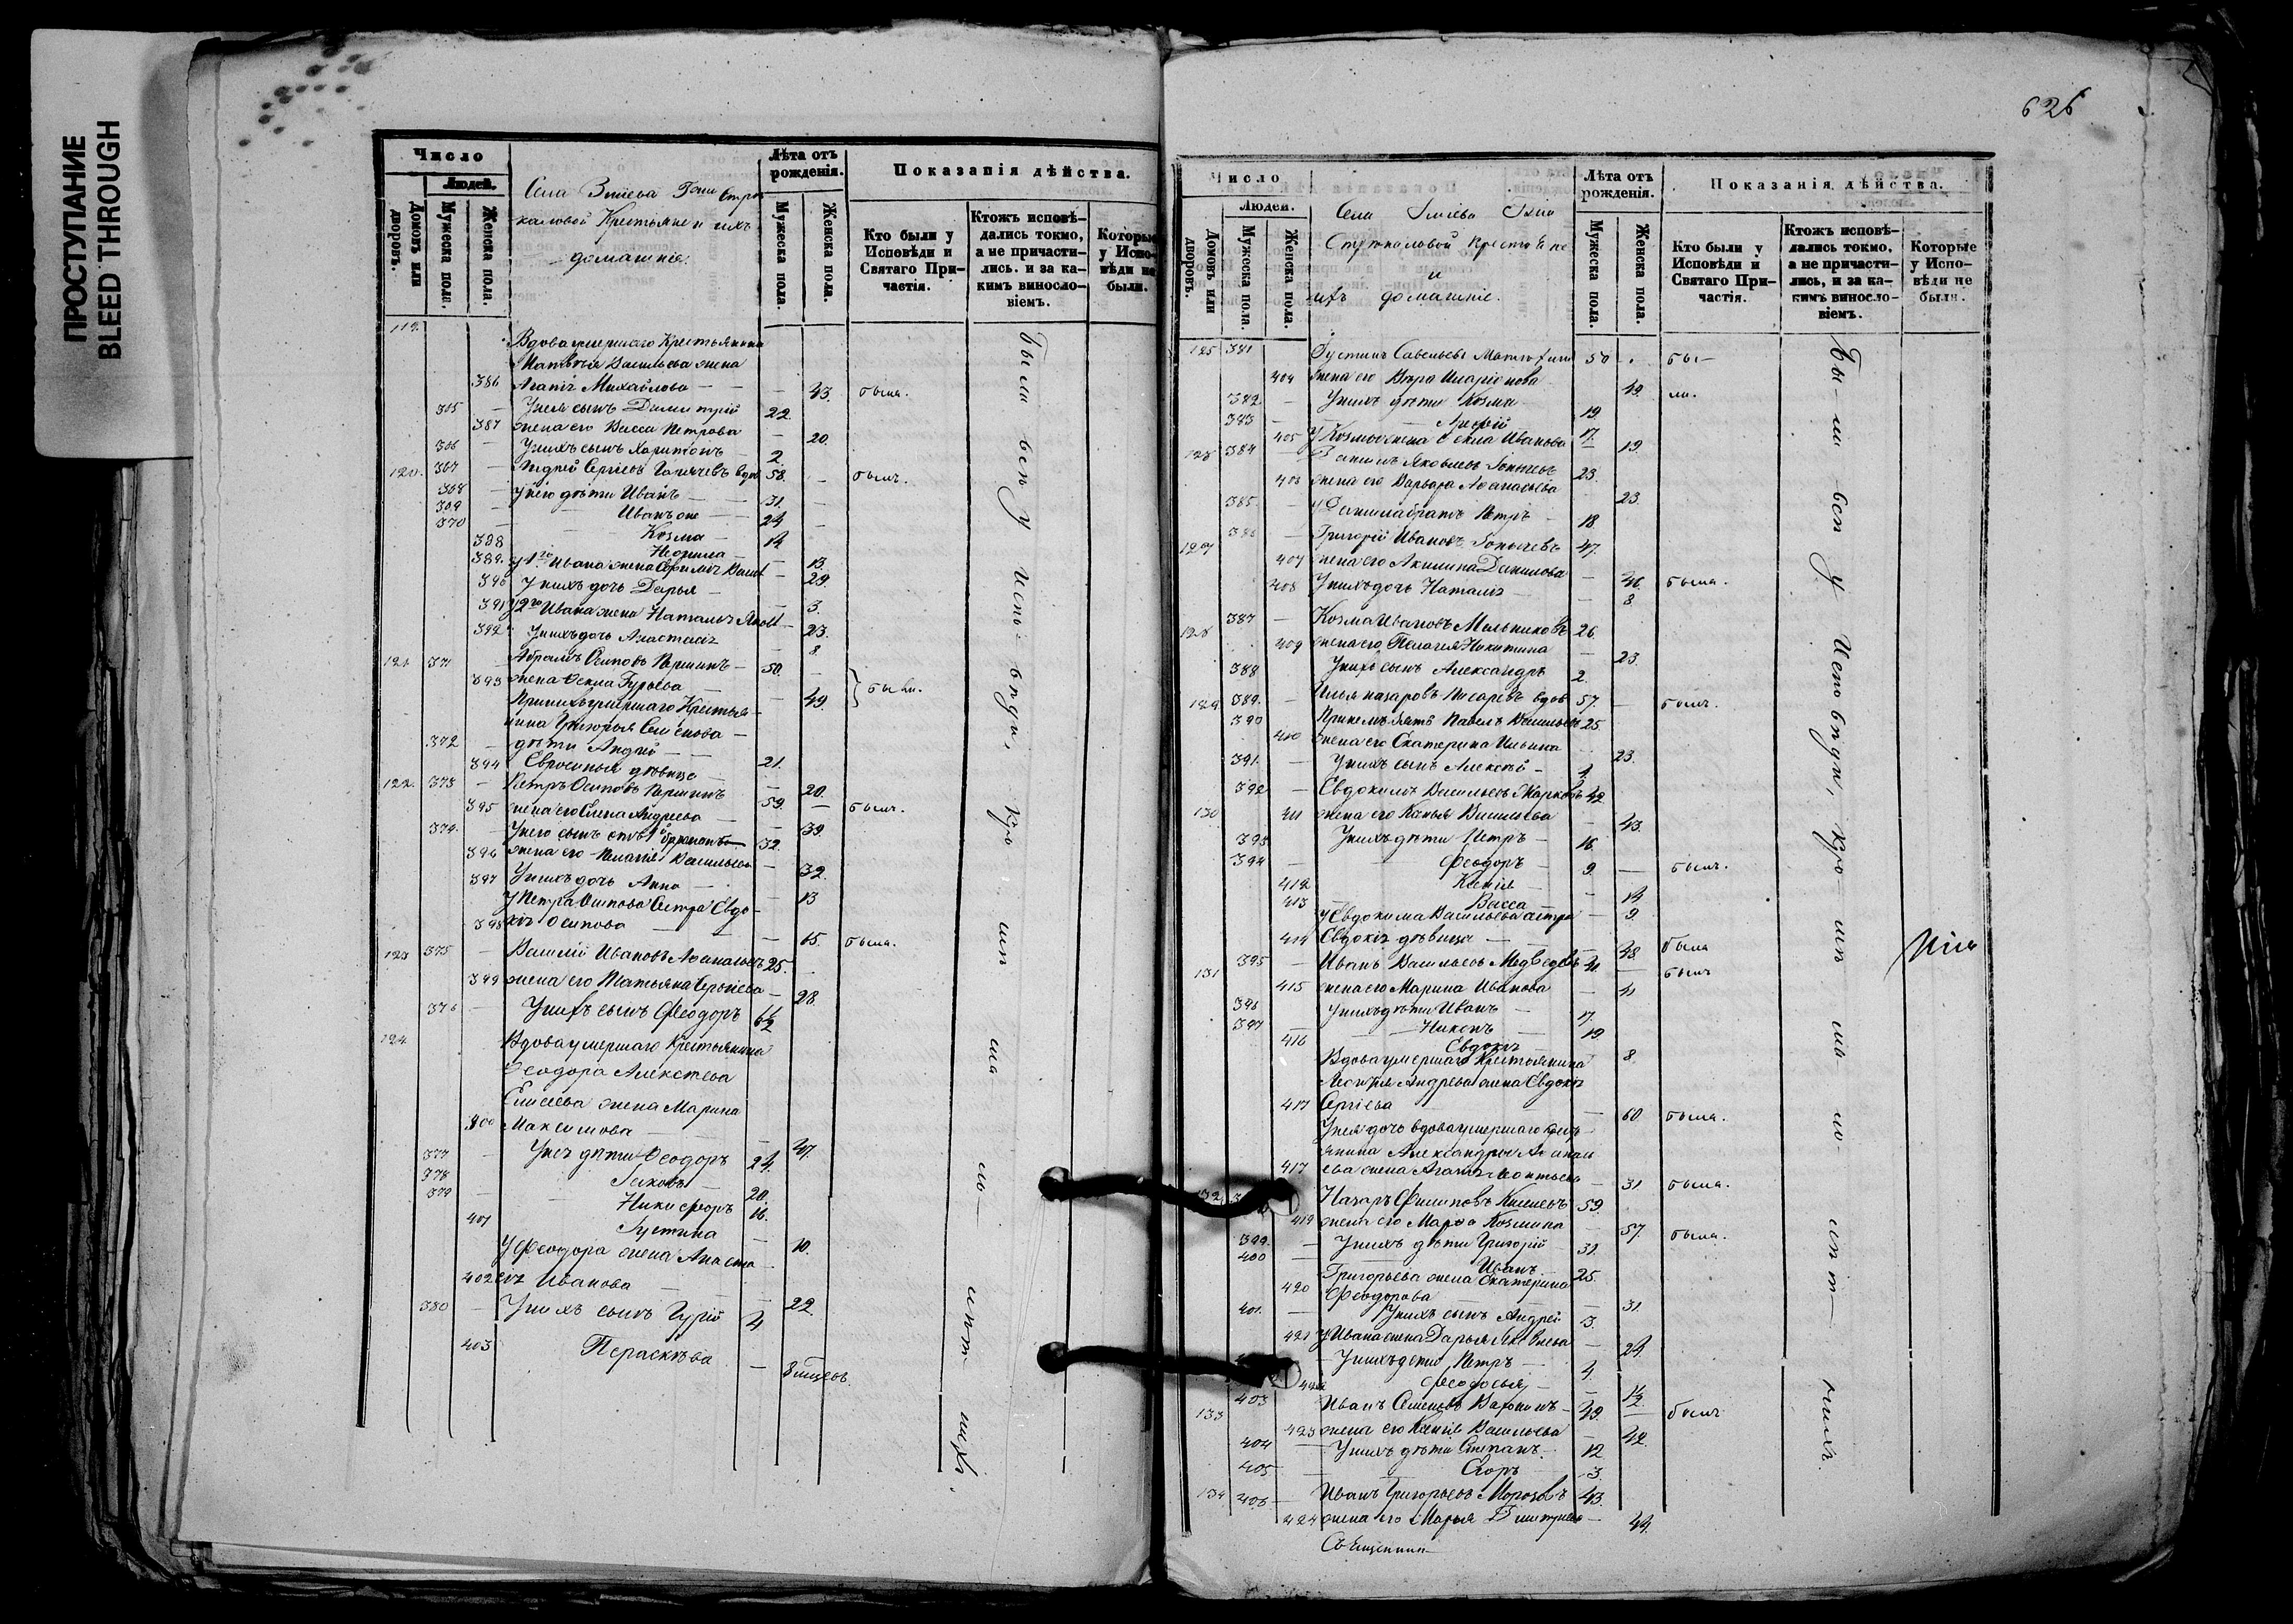 ПРОСТУПАНИЕ
BLEED THROUGH
Число
Людей.
Домовъ или дворовъ.
Мужеска пола.
Женска пола.
Села Змиева Гжи Стро
каловой Крестьяне и ихъ
домашнiе.
Лѣта отъ рожденiя.
Мужеска пола
Женска пола.
Показанiя дѣйства.
Кто были у Исповѣди и Святаго При-частiя.
Ктожъ исповѣ-дались токмо, а не причасти-лись. и за ка-кимъ виносло-вiемъ.
Которые у Испо-вѣди не были.
119.
Вдова умершаго Крестьянина
Матвѣя Васильева жена
386 Агапiя Михайлова — 43. была.
365 Унея сынъ Димитрiй 22
387 жена его Васса Петрова 20.
366 Унихъ сынъ Харитонъ 2
120. 367 Андрей Сергѣевъ вдов 58. былъ.
368 у него дѣти Иванъ 31.
369 Иванъ же 24
370 Козма 14
388 13.
389. у 1го Ивана жена 29
390 Унихъ дочь Дарья 3.
391 у 2го Ивана жена Наталья 23.
392 Унихъ дочь Анастасiя 8.
121 371 Абрамъ Осиповъ 50.
393 жена Ѳекла Гурьева 49. были.
При нихъ умершаго Крестья-
нина Григорья Семенова
372 дѣти Андрей 21.
394 Евросинья дѣвица 20.
122. 373 Петръ Осиповъ 59. былъ.
395 жена его Елена Андреева 39.
374. Унего сынъ 32.
396 жена его Пелагiя Васильева 32.
397 Унихъ дочь Анна 13
У Петра Осипова Сестра Евдо-
398 кiя Осипова 65. была.
123 375 Василiй Ивановъ 25.
399 жена его Татьяна Сергiева 28.
376 Унихъ сынъ Ѳеодоръ 6½
124 Вдова умершаго Крестьянина
Ѳеодора Алексѣева
Елисеева жена Марина
400 Максимова 47.
377 Унея дѣти Ѳеодоръ 24.
378 Iяковъ 20.
379 Никифоръ 16.
401 Iустина 10.
У Ѳеодора жена Анаста
402 сiя Иванова 22.
380 Унихъ сынъ Гурiй 4
403 Параскѣва 8 мцевъ.
Были всѣ у исповѣди, кро мѣ ма ло лѣт нихъ.
626
Число
Людей.
Домовъ или дворовъ.
Мужеска пола.
Женска пола.
Села Змiева Гжи
Строкаловой Крестьяне
и
ихъ домашнiе.
Лѣта отъ рожденiя.
Мужеска пола.
Женска пола.
Показанiя дѣйства.
Кто были у Исповѣди и Святаго При-частiя.
Ктожъ исповѣ-дались токмо, а не причасти-лись, и за ка-кимъ виносло-вiемъ.
Которые у Испо-вѣди не были.
125 381 Iустинъ Савельевъ 50 бы-
404 жена его Вѣра Иларiонова 49. ли.
382 Унихъ дѣти Козма 19.
383 17.
405 У Козмы жена Ѳекла Иванова 19.
126 384 Данiилъ Яковлевъ 23.
406 жена его Варвара Аѳанасьева 23.
385. у Данiила братъ Петръ 18.
127 386 Григорiй Ивановъ 47.
407 жена его Акилина Данилова 46. была.
408 Унихъ дочь Наталiя 8
128 387 Козма Ивановъ Мельниковъ 26
409 жена его Пелагея Никитина 23.
388 Унихъ сынъ Александръ 2.
129 389. Илья Назаровъ Писаревъ вдов 57. былъ.
390 При немъ зять Павелъ Васильевъ 25
410 жена его Екатерина Ильина 23.
391. Унихъ сынъ Алексѣй 1.
130 392 Евдокимъ Васильевъ Марковъ 42
411 жена его Ксенья Васильева 43.
393 Унихъ дѣти Петръ 16.
394 Ѳеодоръ 9. былъ.
412 Ксенiя 14
413 Васса 9.
у Евдокима Васильева сестра
414 Евдокiя дѣвица 48. была
131 395 Иванъ Васильевъ Медвѣдевъ 41 былъ
415 жена его Марина Иванова 41
396 Унихъ дѣти Иванъ 17.
397 Никонъ 13.
416 Евдокiя 8
Вдова умершаго Крестьянина
Леонтiя Андреева жена Евдокiя
417 Сергiева 60 была.
Унея дочь вдова умершаго
417 ева жена Агафья Леонтьева 31 была.
132 Назаръ Филиповъ 59.
419 жена его Марѳа Козмина 57. была.
399. Унихъ дѣти Григорiй 31.
400 Иванъ 25.
Григорьева жена Екатерина
420 Ѳеодорова 31
401. Унихъ сынъ Андрей 3.
421 У Ивана жена Дарья 24.
Унихъ дети Петръ 4.
422 Ѳеодосья 1½
133 403 Иванъ Семеновъ 49. былъ
423 жена его Ксенiя Васильева 42.
404 Унихъ дѣти Степанъ 12
405 Егоръ 3.
134 406 Иванъ Григорьевъ Морозовъ 43.
424 жена его Марья Дмитрiева 44.
Бы- ли всѣ у Исповѣди, кро- мѣ ма- ло- лѣт- нихъ.
Священникъ